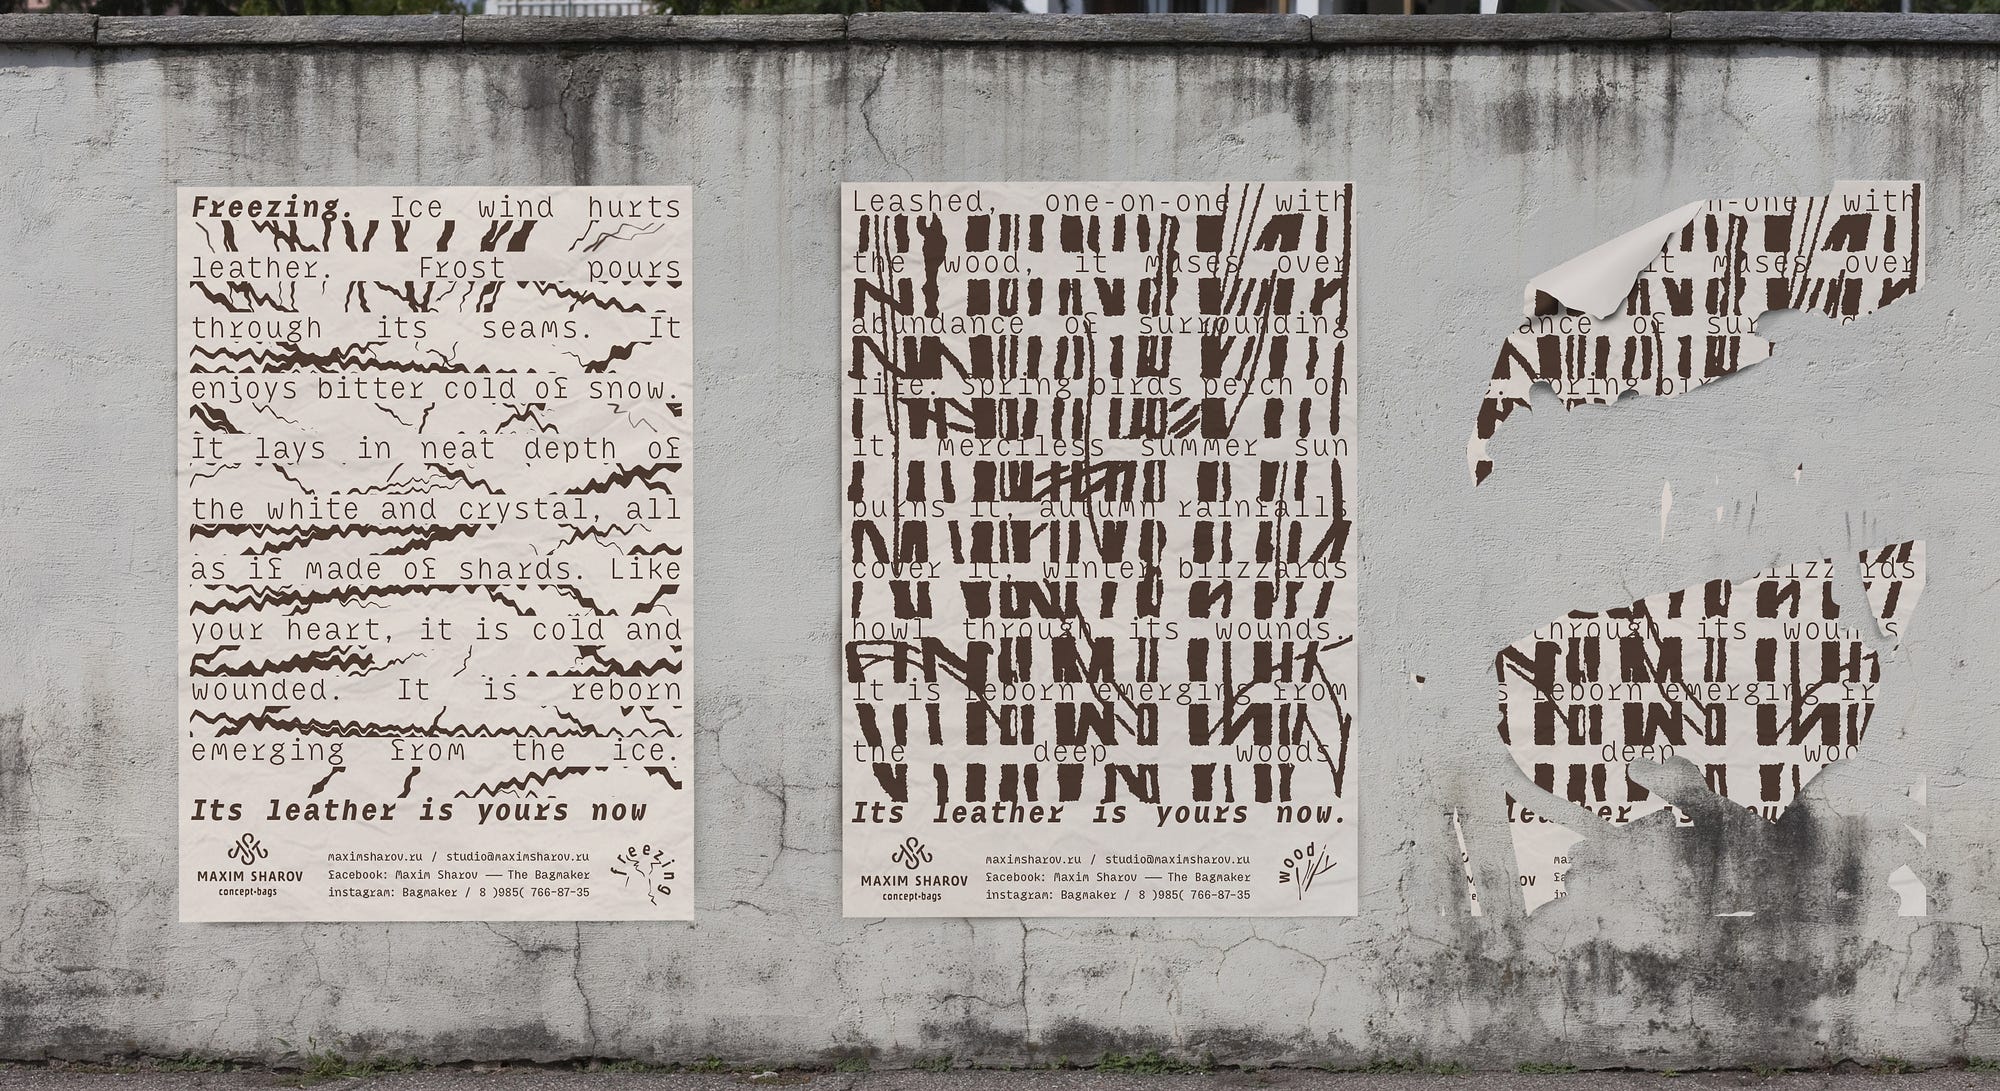 Freezing. Ice wind hurts
leather. Frost pours
through its seams. It
enjoys bitter cold of snow.
It lays in neat depth of
the white and crystal, all
as if made of shards. Like
your heart, it is cold and
wounded. It is reborn
emerging from the ice.
Its leather is yours now
MAXIM SHAROV
concept•bags
maximsharov.ru / studio@maximsharov.ru
facebook: Maxim Sharov — The Bagmaker
instagram: Bagmaker / 8 )985( 766-87-35
freezing
Leashed, one-on-one with
the wood, it muses over
abundance of surrounding
life. Spring birds perch on
it, merciless summer sun
burns it, autumn rainfalls
cover it, winter blizzards
howl through its wounds.
It is reborn emerging from
the deep woods.
Its leather is yours now.
MAXIM SHAROV
concept•bags
maximsharov.ru / studio@maximsharov.ru
facebook: Maxim Sharov — The Bagmaker
instagram: Bagmaker / 8 )985( 766-87-35
wood
n-one with
it muses over
ance of sur
pring bir
blizzards
through its wounds.
s reborn emerging fr
deep woo
leather is your
OV
ma
fa
in